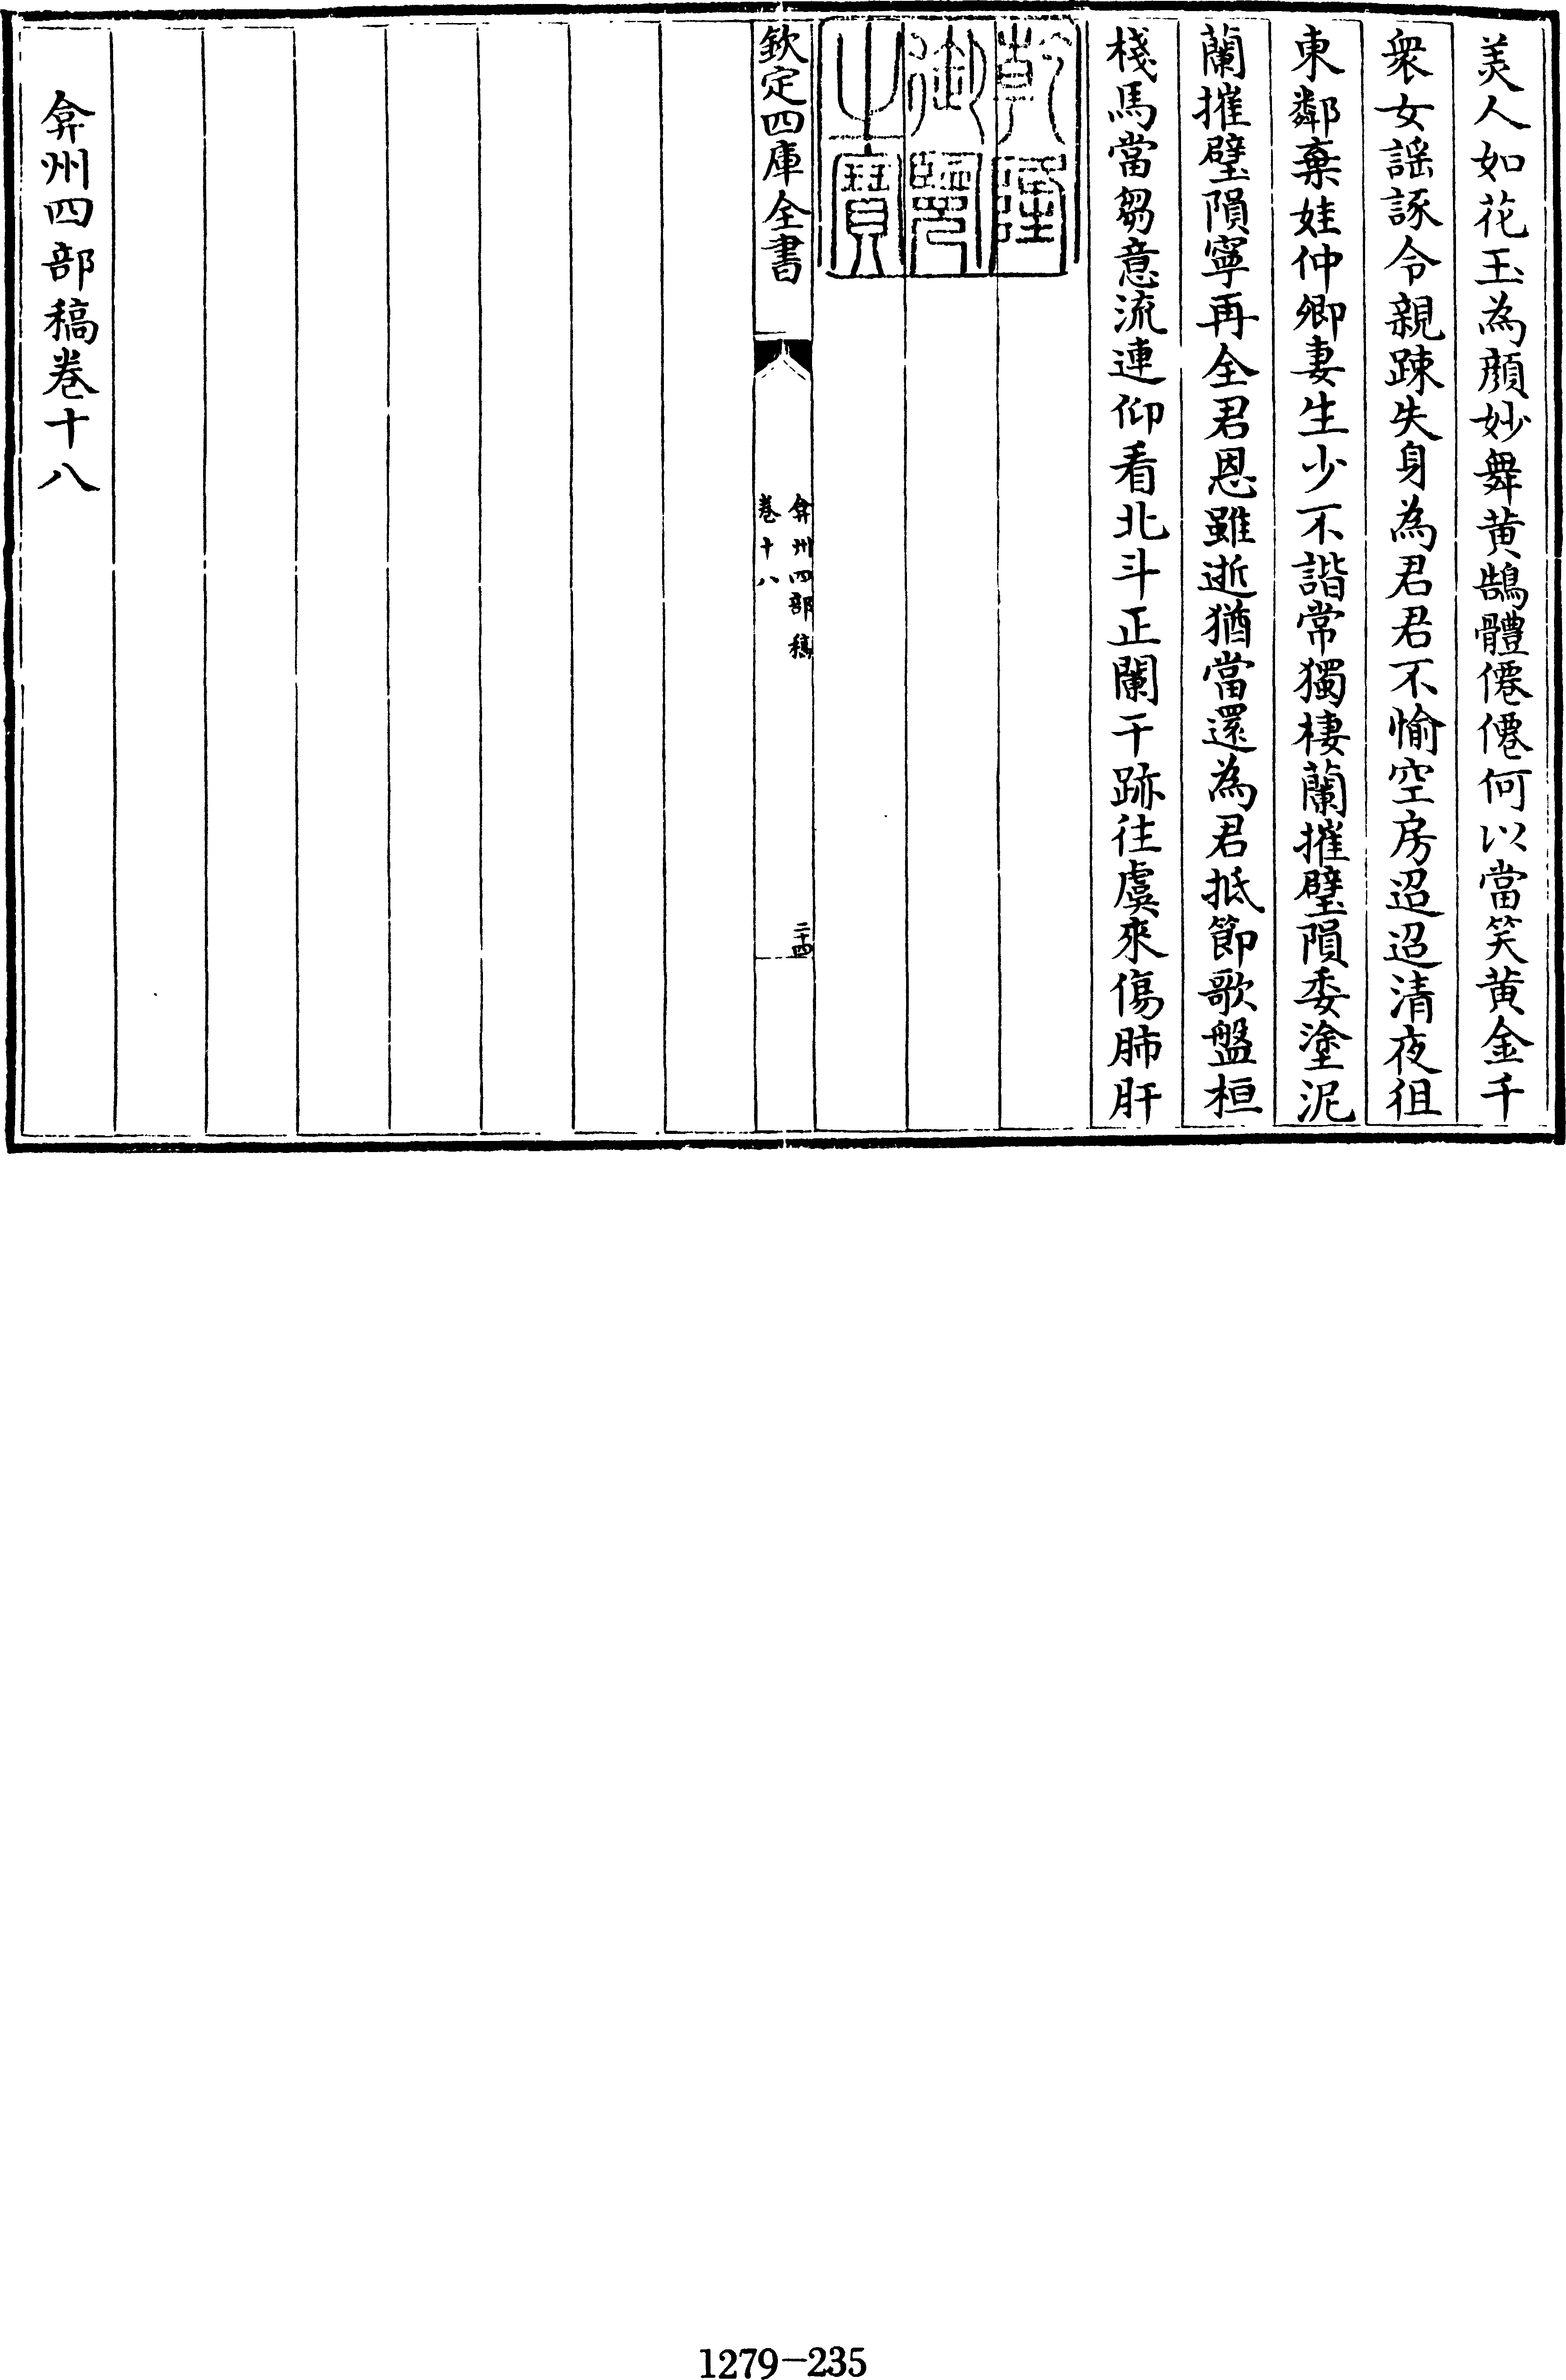 美人如花玉為顔妙舞黄鵠體僊僊何以當笑黄金千
衆女謡諑令親踈失身為君君不愉空房迢迢清夜徂
東鄰棄娃仲卿妻生少不諧常獨棲蘭摧璧隕委塗泥
蘭摧璧隕寧再全君恩雖逝猶當還為君抵節歌盤桓
棧馬當芻意流連仰看北斗正闌干跡往虞來傷肺肝
乾隆
御覽
之寶
欽定四庫全書
弇州四部稿
卷十八
二十四
弇州四部稿卷十八
1279-235